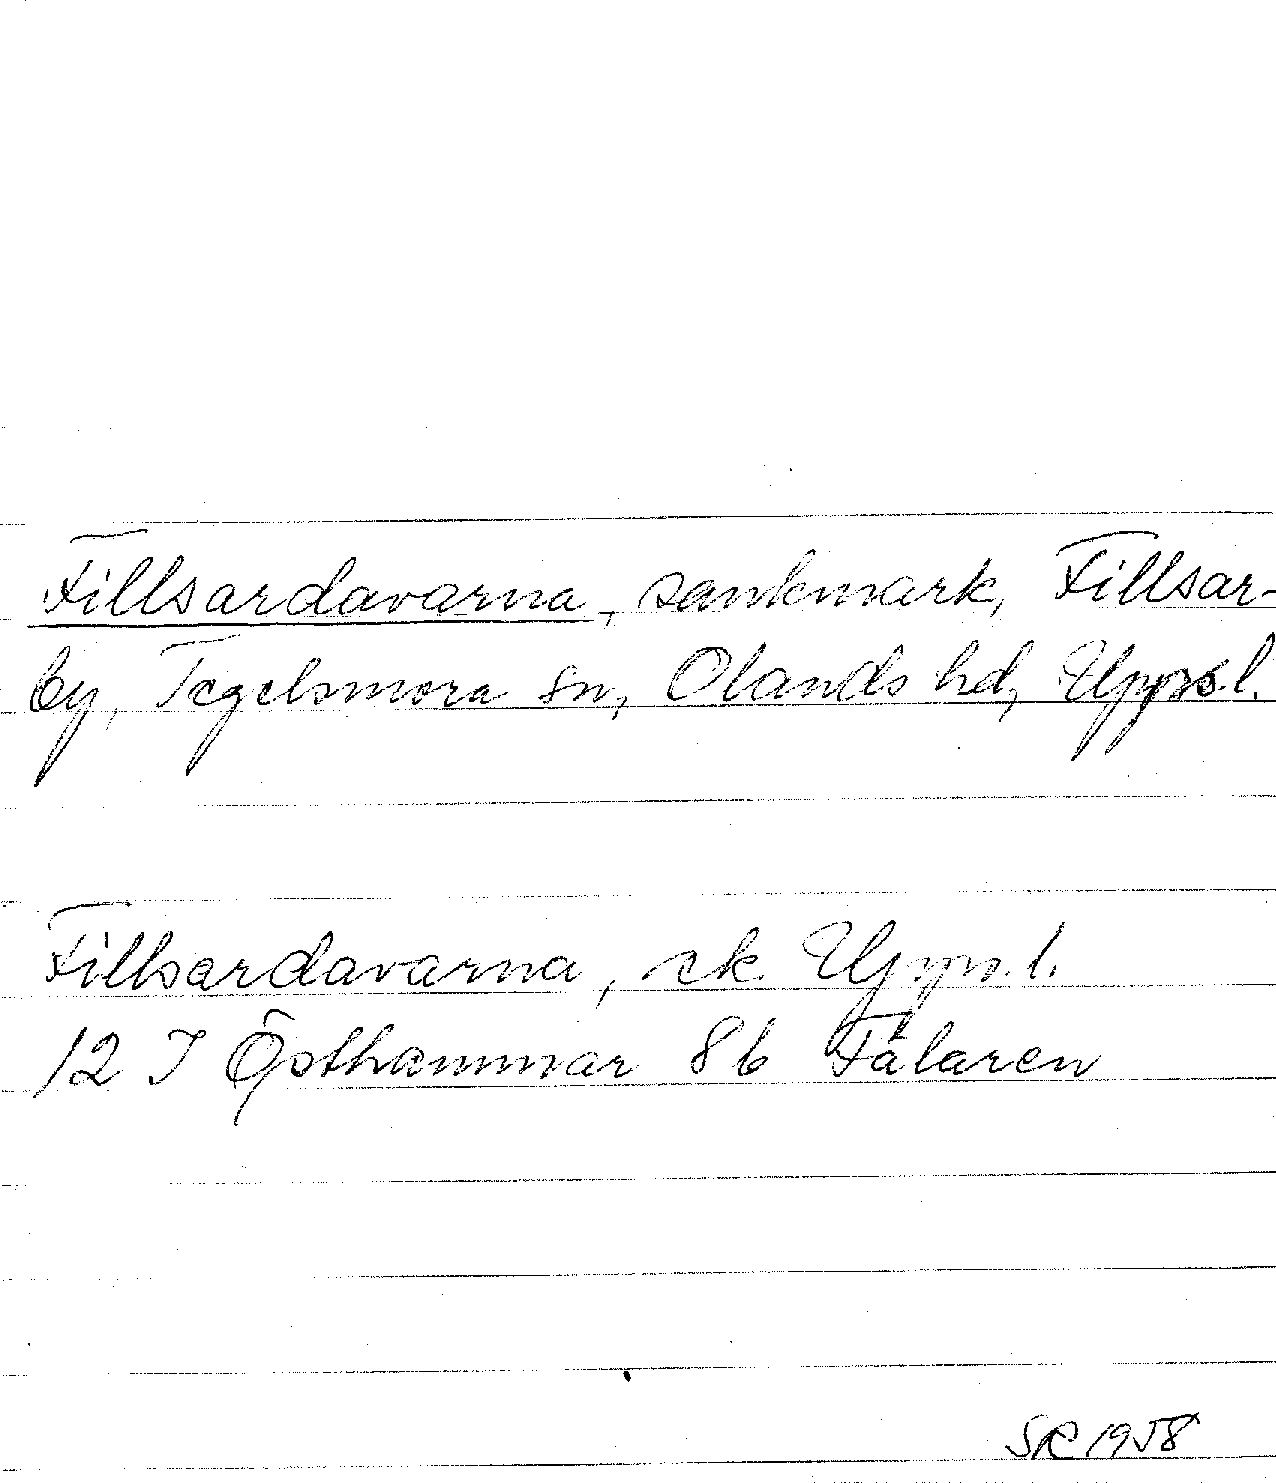 Fillsardavarna, sankmark, Fillsar-
by, Tegelsmora sn, Olands hd, Uppsl.
Fillsardavarna, ek. Upps. l.
12 I Östhammar 8b Fälaren
SR 1958